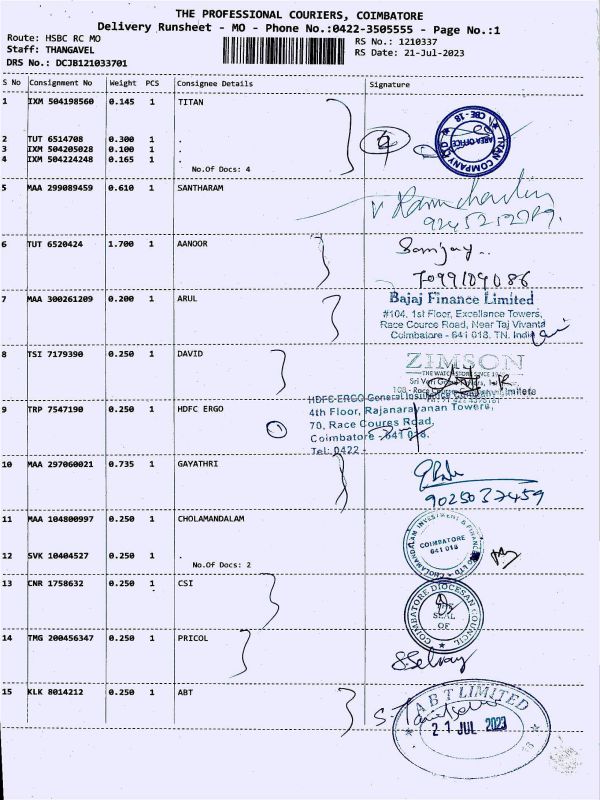 THE PROFESSIONAL COURIERS, COIMBATORE
Delivery Runsheet - MO - Phone No.:0422-3505555 - Page No.:1
Route: HSBC RC MO
RS No.: 1210337
Staff: THANGAVEL
RS Date: 21-Jul-2023
DRS No.: DCJB121033701
S No Consignment No Weight PCS Consignee Details Signature
1 IXM 504198560 0.145 1 TITAN
2 TUT 6514708 0.300 1 .
3 IXM 504205028 0.100 1 .
4 IXM 504224248 0.165 1 .
No.Of Docs: 4
4
TITAN COMPANY
AREA OFFICE
CBE - 18
5 MAA 299089459 0.610 1 SANTHARAM
6 TUT 6520424 1.700 1 AANOOR
Sanjay..
7099109086
7 MAA 300261209 0.200 1 ARUL
Bajaj Finance Limited
#104, 1st Floor, Excellance Towers,
Race Cource Road, Near Taj Vivanta
Coimbatore - 641 018, TN, India
8 TSI 7179390 0.250 1 DAVID
ZIMSON
THE WATCH STORE SINCE
108 - Race Limited
9 TRP 7547190 0.250 1 HDFC ERGO
HDFC ERGO General Insurance Company Limited
4th Floor, Rajanarayanan Towers,
70, Race Coures Road,
Coimbatore - 641 018.
Tel: 0422 -
10 MAA 297060021 0.735 1 GAYATHRI
9025037459
11 MAA 104800997 0.250 1 CHOLAMANDALAM
12 SVK 10404527 0.250 1 .
No.Of Docs: 2
CHOLAMANDALAM INVESTMENT & FINANCE CO LTD
COIMBATORE
641 018
13 CNR 1758632 0.250 1 CSI
COIMBATORE DIOCESAN COUNCIL
THE SEAL OF
14 TMG 200456347 0.250 1 PRICOL
S.Selvaj
15 KLK 8014212 0.250 1 ABT
ABT LIMITED
21 JUL 2023